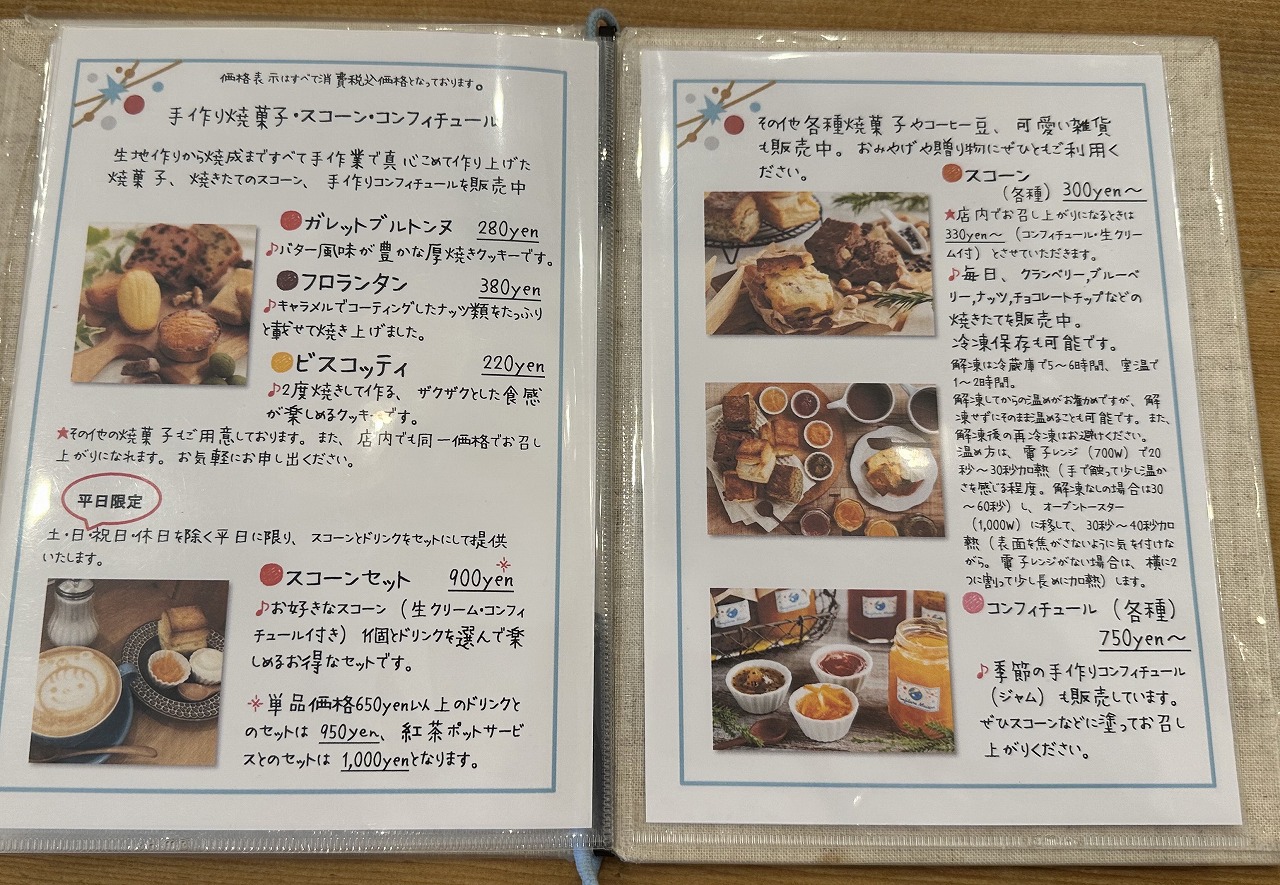 価格表示はすべて消費税込価格となっております。
手作り焼菓子・スコーン・コンフィチュール
生地作りから焼成まですべて手作業で真心こめて作り上げた
焼菓子、焼きたてのスコーン、手作りコンフィチュールを販売中
ガレットブルトンヌ 280yen
♪バター風味が豊かな厚焼きクッキーです。
フロランタン 380yen
♪キャラメルでコーティングしたナッツ類をたっぷり
と載せて焼き上げました。
ビスコッティ 220yen
♪2度焼きして作る、ザクザクとした食感
が楽しめるクッキーです。
★その他の焼菓子もご用意しております。また、店内でも同一価格でお召し
上がりになれます。お気軽にお申し出ください。
平日限定
土・日・祝日・休日を除く平日に限り、スコーンとドリンクをセットにして提供
いたします。
スコーンセット 900yen
♪お好きなスコーン（生クリーム・コンフィ
チュール付き）1個とドリンクを選んで楽
しめるお得なセットです。
単品価格650yen以上のドリンクと
のセットは 950yen、紅茶ポットサービ
スとのセットは 1,000yenとなります。
その他各種焼菓子やコーヒー豆、可愛い雑貨
も販売中。おみやげや贈り物にぜひともご利用く
ださい。
スコーン
（各種）300yen～
★店内でお召し上がりになるときは
330yen～（コンフィチュール・生クリー
ム付）とさせていただきます。
♪毎日、クランベリー,ブルーベ
リー,ナッツ,チョコレートチップなどの
焼きたてを販売中。
冷凍保存も可能です。
解凍は冷蔵庫で5～6時間、室温で
1～2時間。
解凍してからの温めがお薦めですが、解
凍せずにそのまま温めることも可能です。また、
解凍後の再冷凍はお避けください。
温め方は、電子レンジ（700W）で20
秒～30秒加熱（手で触って少し温か
さを感じる程度。解凍なしの場合は30
～60秒）し、オーブントースター
（1,000W）に移して、30秒～40秒加
熱（表面を焦がさないように気を付けな
がら。電子レンジがない場合は、横に2
つに割って少し長めに加熱）します。
コンフィチュール（各種）
750yen～
♪季節の手作りコンフィチュール
（ジャム）も販売しています。
ぜひスコーンなどに塗ってお召し
上がりください。